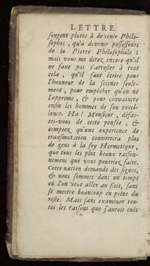 LETTRE
songent plutôt à devenir Philo-
sophes, qu'à devenir possesseurs
de la Pierre Philosophale :
mais vous me direz, encore qu'il
ne faut pas s'arrester à tout
cela, qu'il faut écrire pour
l'honneur de la science seule-
ment, pour empêcher qu'on ne
l'opprime, & pour convaincre
enfin les hommes de son excel-
lence. Ha ! Monsieur, défai-
tes-vous de cette pensée, &
comptez, qu'une experience de
transmutation convertira plus
de gens à la foy Hermetique,
que tous les plus beaux raison-
nemens que vous pourriez faire.
Cette nation demande des signes,
& nous sommes dans un temps
où l'on veut aller au fait, sans
se mettre beaucoup en peine du
reste. Mais sans examiner tou-
tes les raisons que j'aurois eues